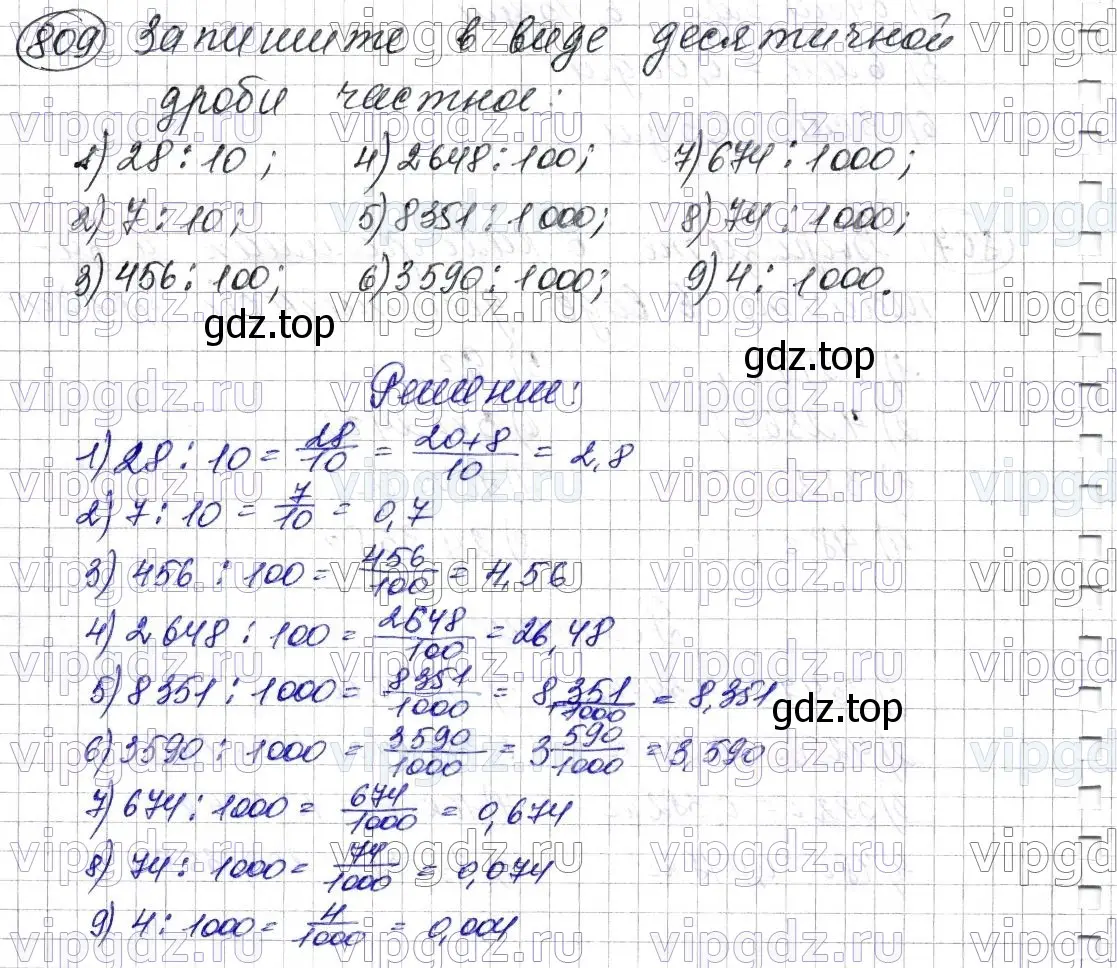 809 Запишите в виде десятичной
дроби частное:
1) 28 : 10 ; 4) 2648 : 100; 7) 674 : 1000;
2) 7 : 10; 5) 8351 : 1000; 8) 74 : 1000;
3) 456 : 100; 6) 3590 : 1000; 9) 4 : 1000.
gdz.top
gdz.top
Решение:
1) 28 : 10 = 28/10 = (20+8)/10 = 2,8
2) 7 : 10 = 7/10 = 0,7
3) 456 : 100 = 456/100 = 4,56
4) 2648 : 100 = 2648/100 = 26,48
5) 8351 : 1000 = 8351/1000 = 8 351/1000 = 8,351
gdz.top
6) 3590 : 1000 = 3590/1000 = 3 590/1000 = 3,590
7) 674 : 1000 = 674/1000 = 0,674
8) 74 : 1000 = 74/1000 = 0,074
9) 4 : 1000 = 4/1000 = 0,004
vipgdz.ru